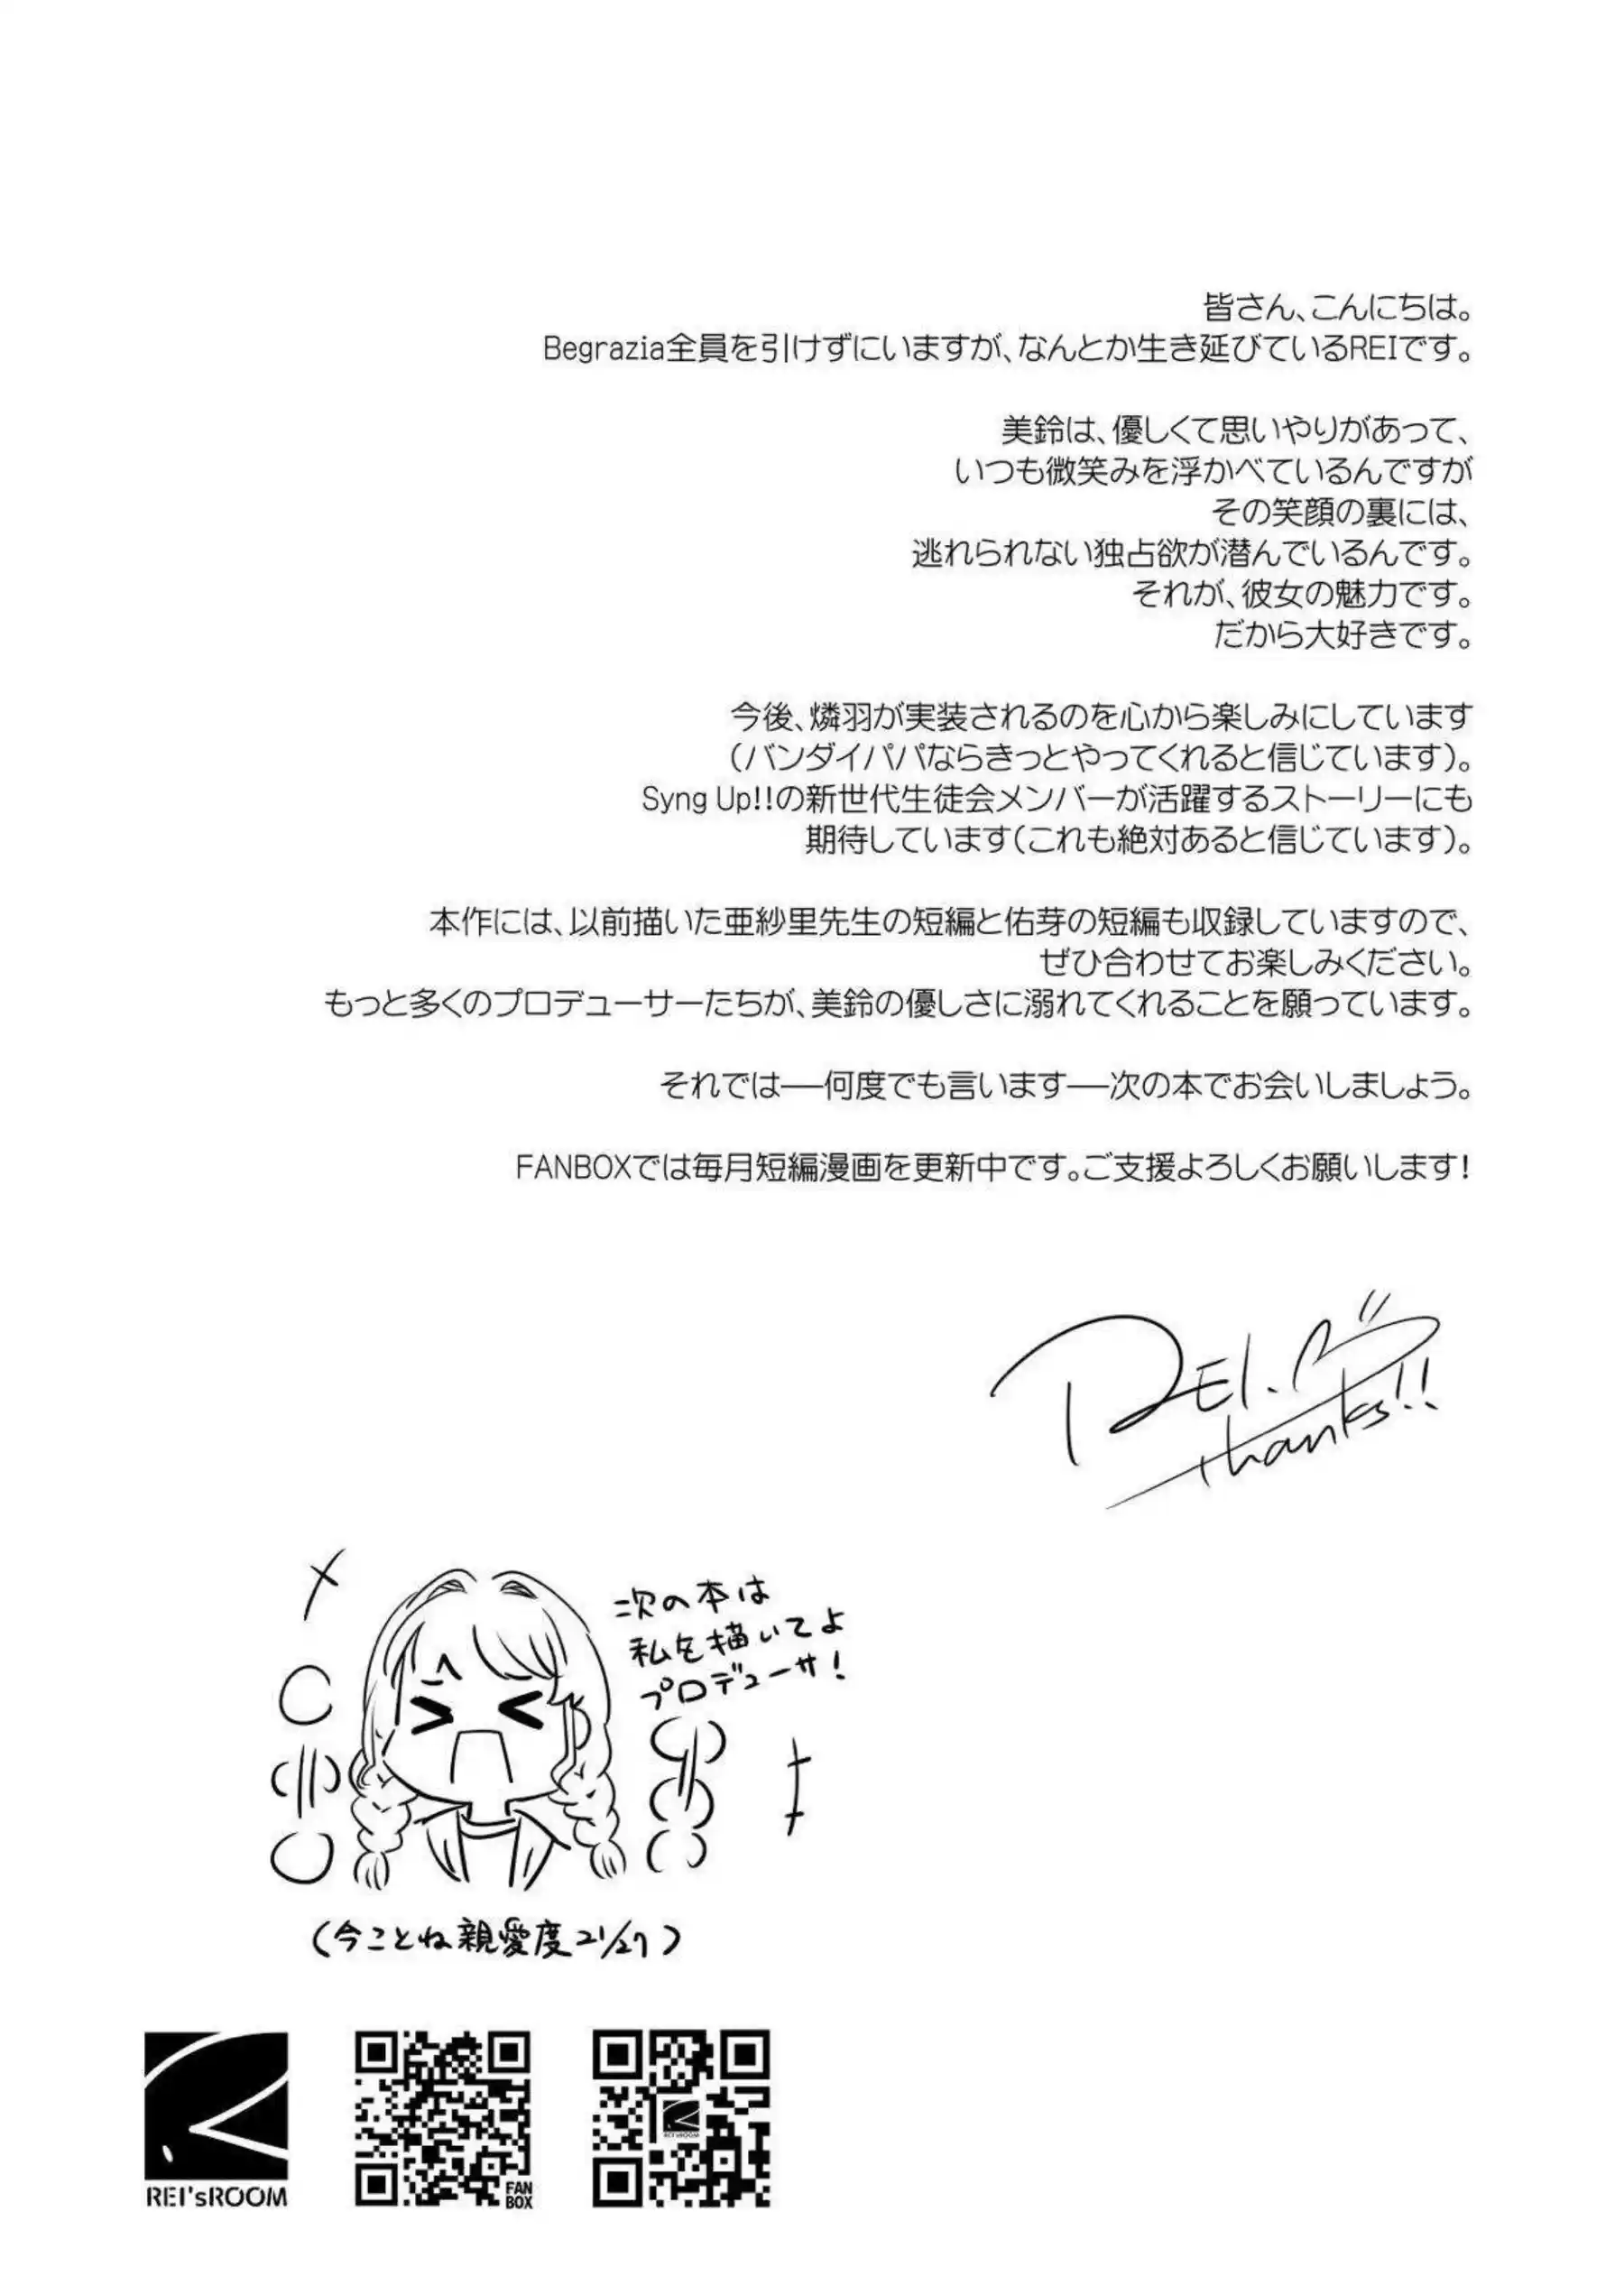 皆さん、こんにちは。
Begrazia全員を引けずにいますが、なんとか生き延びているREIです。
美鈴は、優しくて思いやりがあって、
いつも微笑みを浮かべているんですが
その笑顔の裏には、
逃れられない独占欲が潜んでいるんです。
それが、彼女の魅力です。
だから大好きです。
今後、燐羽が実装されるのを心から楽しみにしています
（バンダイパパならきっとやってくれると信じています）。
Syng Up!!の新世代生徒会メンバーが活躍するストーリーにも
期待しています（これも絶対あると信じています）。
本作には、以前描いた亜紗里先生の短編と佑芽の短編も収録していますので、
ぜひ合わせてお楽しみください。
もっと多くのプロデューサーたちが、美鈴の優しさに溺れてくれることを願っています。
それでは──何度でも言います──次の本でお会いしましょう。
FANBOXでは毎月短編漫画を更新中です。ご支援よろしくお願いします！
REI.
thanks!!
次の本は
私を描いてよ
プロデューサ！
（今ことね親愛度21/27）
REI'sROOM
FAN
BOX
REI'sROOM